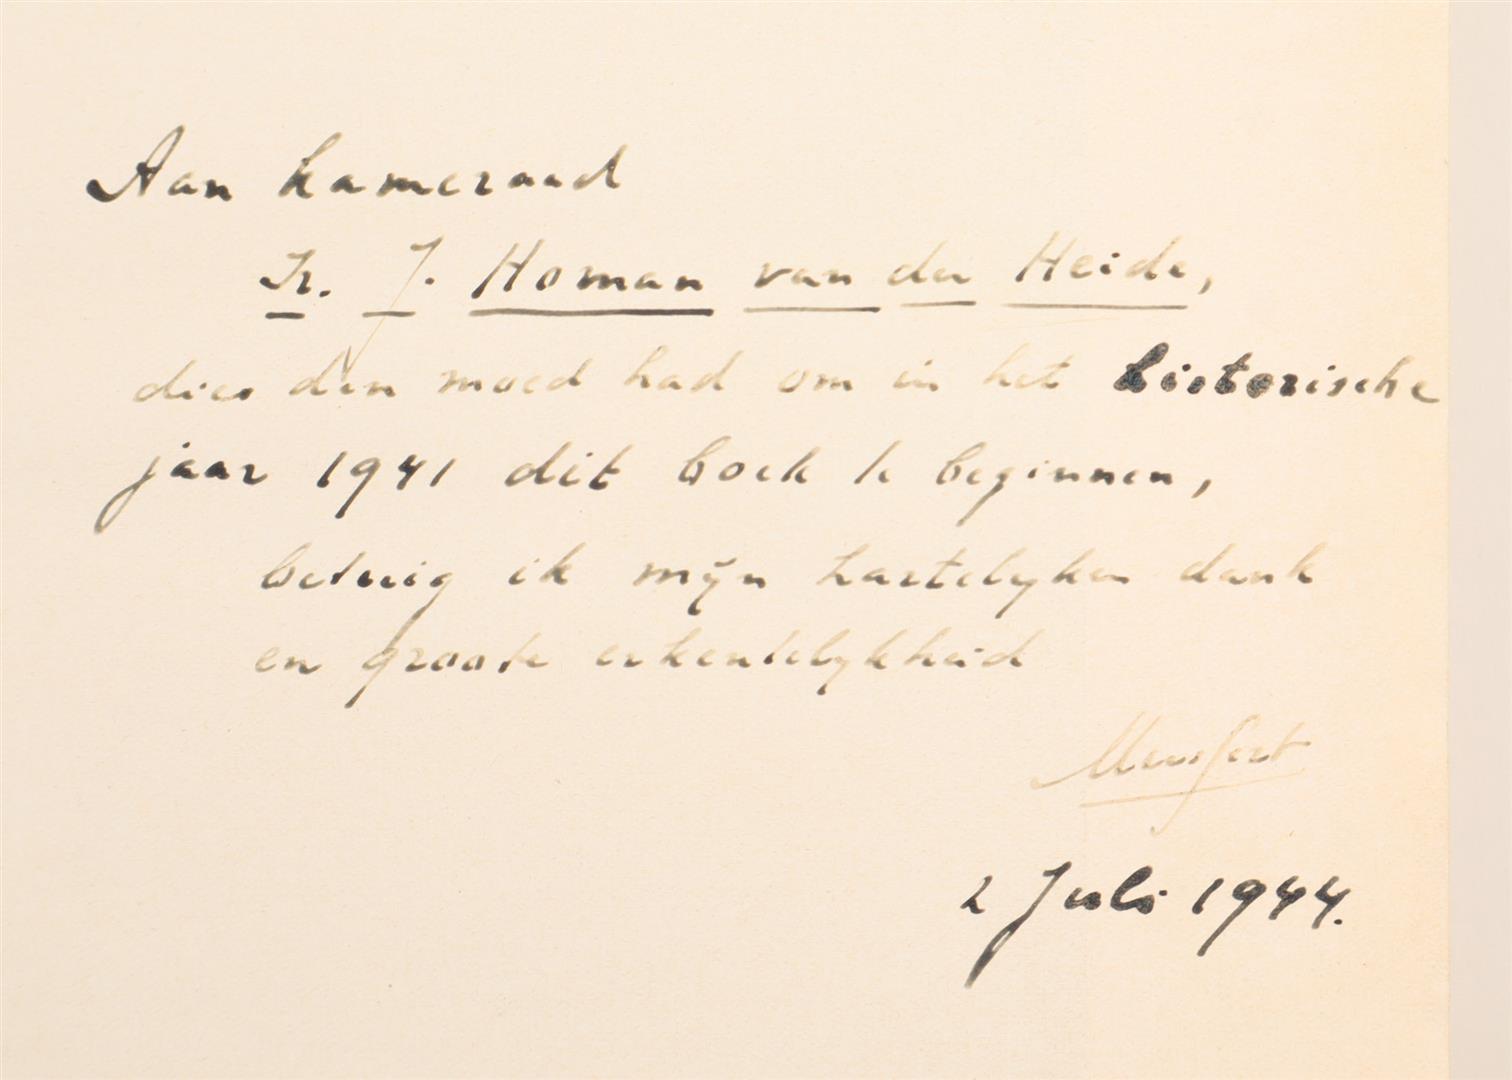 Aan kameraad
Ir. J. Homan van der Heide,
die den moed had om in het historische
jaar 1941 dit boek te beginnen,
betuig ik mijn hartelijken dank
en groote erkentelijkheid
2 Juli 1944.